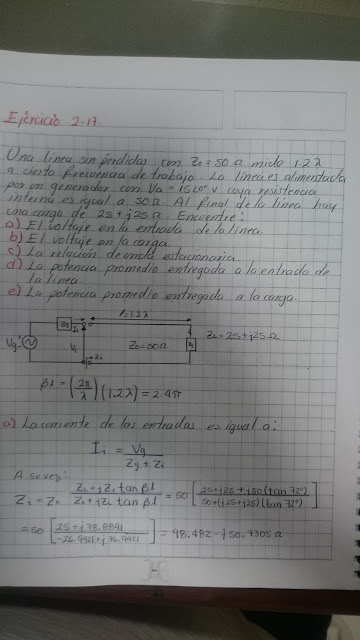 Ejercicio 2-17.
Una linea sin perdidas con Zo = 50 Ω mide 1.2 λ
a cierta frecuencia de trabajo. La linea es alimentada
por un generador con Va = 15∠0° v cuya resistencia
interna es igual a 50 Ω Al final de la linea hay
una carga de 25 + j 25 Ω. Encuentre:
a) El voltaje en la entrada de la linea
b) El voltaje en la carga.
c) La relación de onda estacionaria.
d) La potencia promedio entregada a la entrada de
la linea.
e) La potencia promedio entregada a la carga.
l = 1.2 λ
Zg Ii
Vg Vi Zo = 50Ω ZL ZL = 25 + j25 Ω
Zi
βl = (2π/λ)(1.2 λ) = 2.4π
a) La corriente de las entradas es igual a:
Ii = Vg / Zg + Zi
A su vez:
Zi = Zo ZL + jZo tan βl / Zo + jZL tan βl = 50 [25 + j25 + j50 (tan 72°) / 50 + (j25 + j25)(tan 72°)]
= 50 [25 + j 78.8841 / -26.9421 + j 76.9421] = 48.482 - j 50.7305 Ω